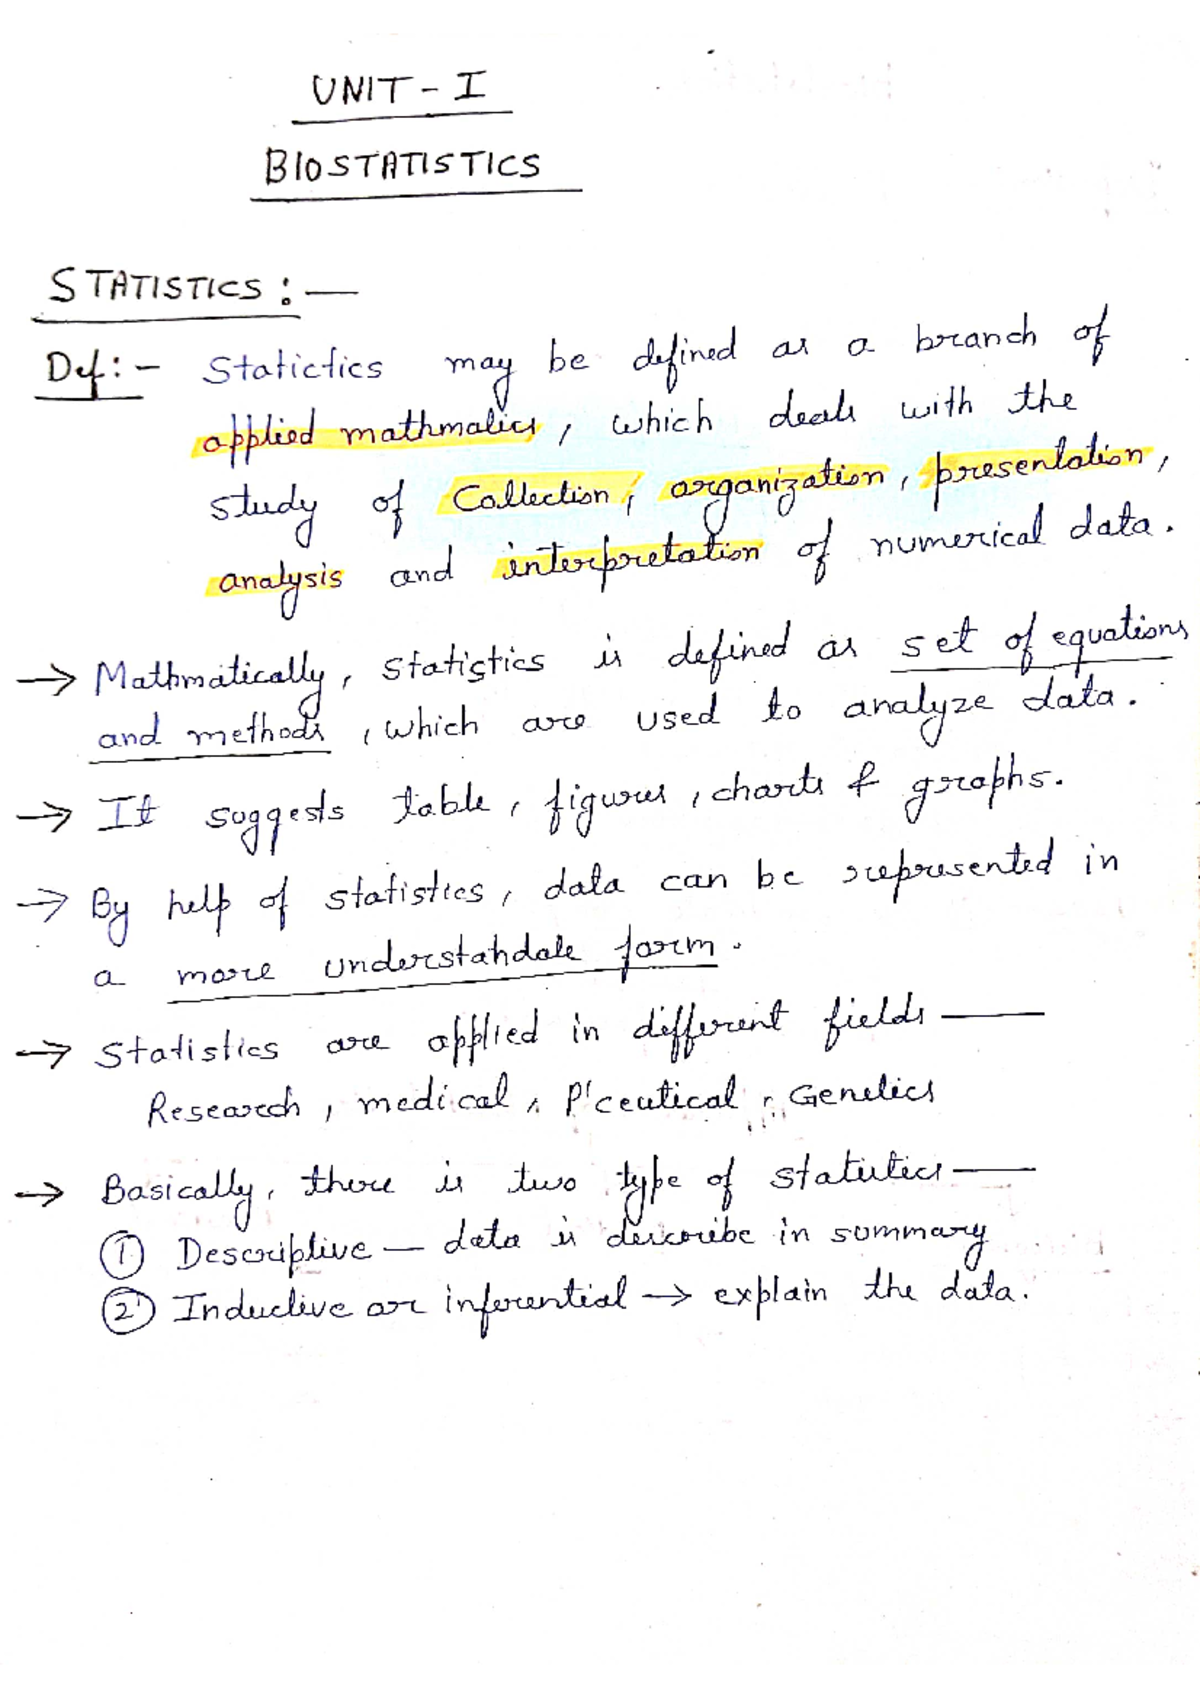 UNIT - I
BIOSTATISTICS
STATISTICS : —
Def : - Statictics may be defined as a branch of
applied mathmatics, which deals with the
study of Collection, organization, presentation,
analysis and interpretation of numerical data.
→ Mathmatically, statistics is defined as set of equations
and methods, which are used to analyze data.
→ It suggests table, figures, charts & graphs.
→ By help of statistics, data can be represented in
a more understahdale form.
→ Statistics are applied in different fields —
Research, medical, P'ceutical, Genetics
→ Basically, there is two type of statistics —
① Descriptive — data is describe in summary
② Inductive or inferential → explain the data.